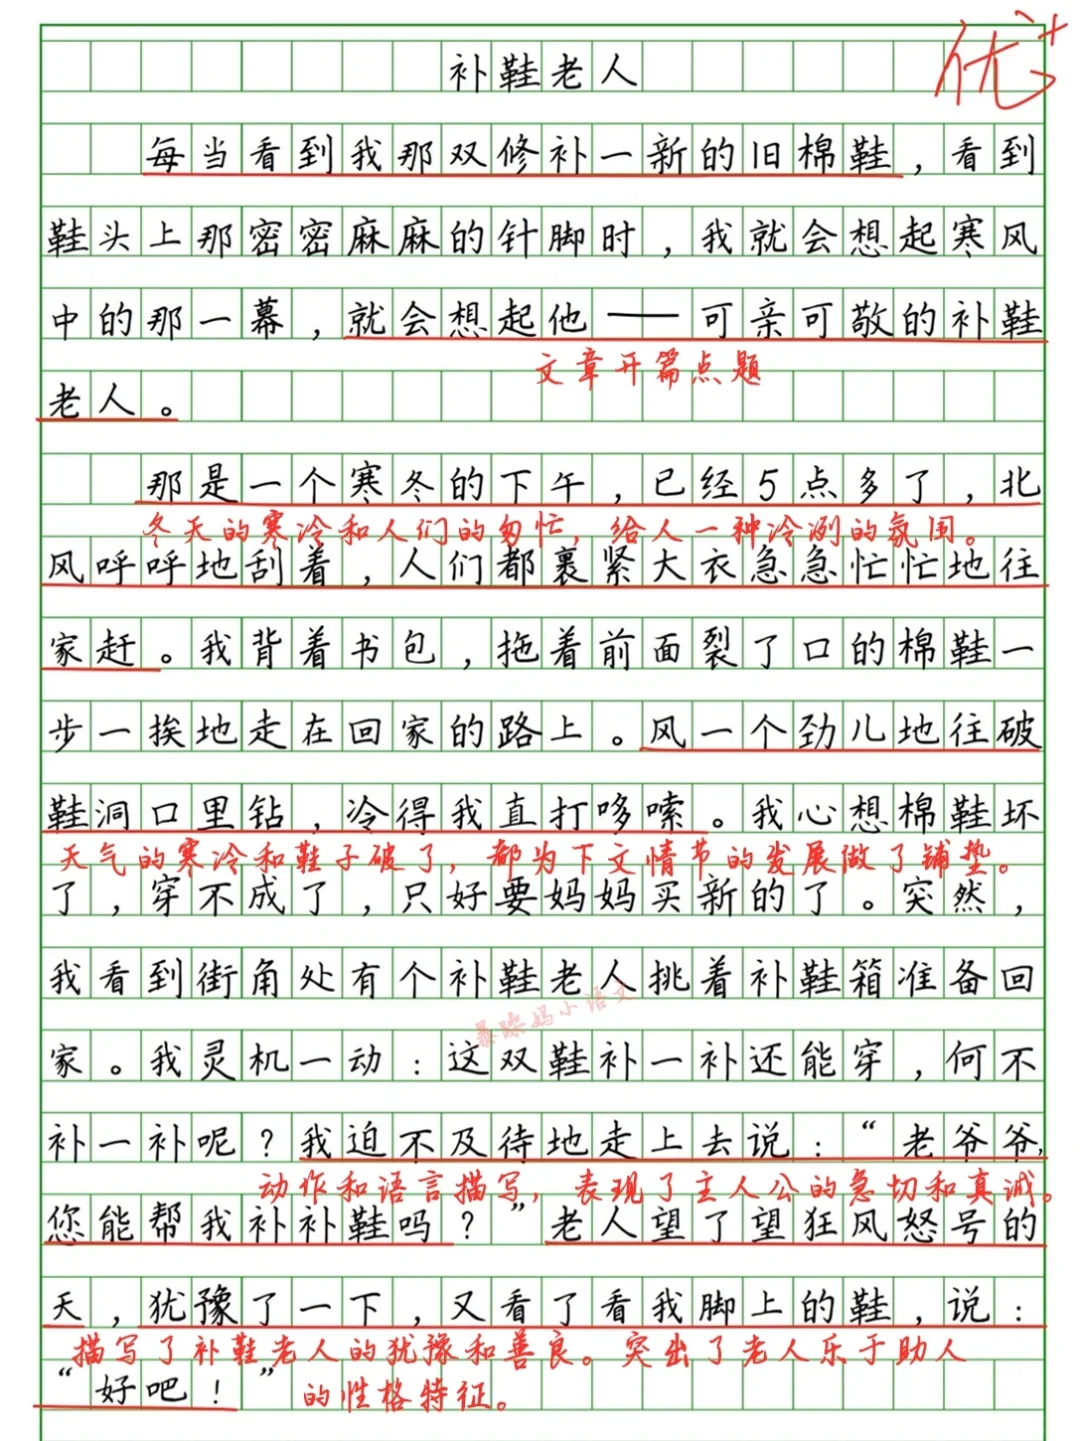 补鞋老人
优+
每当看到我那双修补一新的旧棉鞋，看到
鞋头上那密密麻麻的针脚时，我就会想起寒风
中的那一幕，就会想起他——可亲可敬的补鞋
文章开篇点题
老人。
那是一个寒冬的下午，已经5点多了，北
冬天的寒冷和人们的匆忙，给人一种冷冽的氛围。
风呼呼地刮着，人们都裹紧大衣急急忙忙地往
家赶。我背着书包，拖着前面裂了口的棉鞋一
步一挨地走在回家的路上。风一个劲儿地往破
鞋洞口里钻，冷得我直打哆嗦。我心想棉鞋坏
天气的寒冷和鞋子破了，都为下文情节的发展做了铺垫。
了，穿不成了，只好要妈妈买新的了。突然，
我看到街角处有个补鞋老人挑着补鞋箱准备回
暴躁妈小语文
家。我灵机一动：这双鞋补一补还能穿，何不
补一补呢？我迫不及待地走上去说：“老爷爷，
动作和语言描写，表现了主人公的急切和真诚。
您能帮我补补鞋吗？”老人望了望狂风怒号的
天，犹豫了一下，又看了看我脚上的鞋，说：
描写了补鞋老人的犹豫和善良。突出了老人乐于助人
“好吧！”
的性格特征。